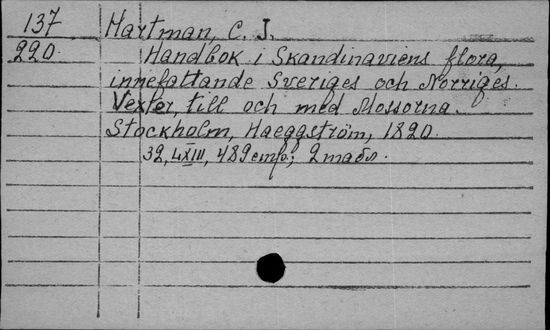 137 Hartman, C. J.
220. Handbok i Skandinaviens flora,
innefattande Sveriges och Norriges.
Vexter, till och med Mossorna.
Stockholm, Haeggström, 1820.
32, LXIII, 489 стр.; 2 табл.